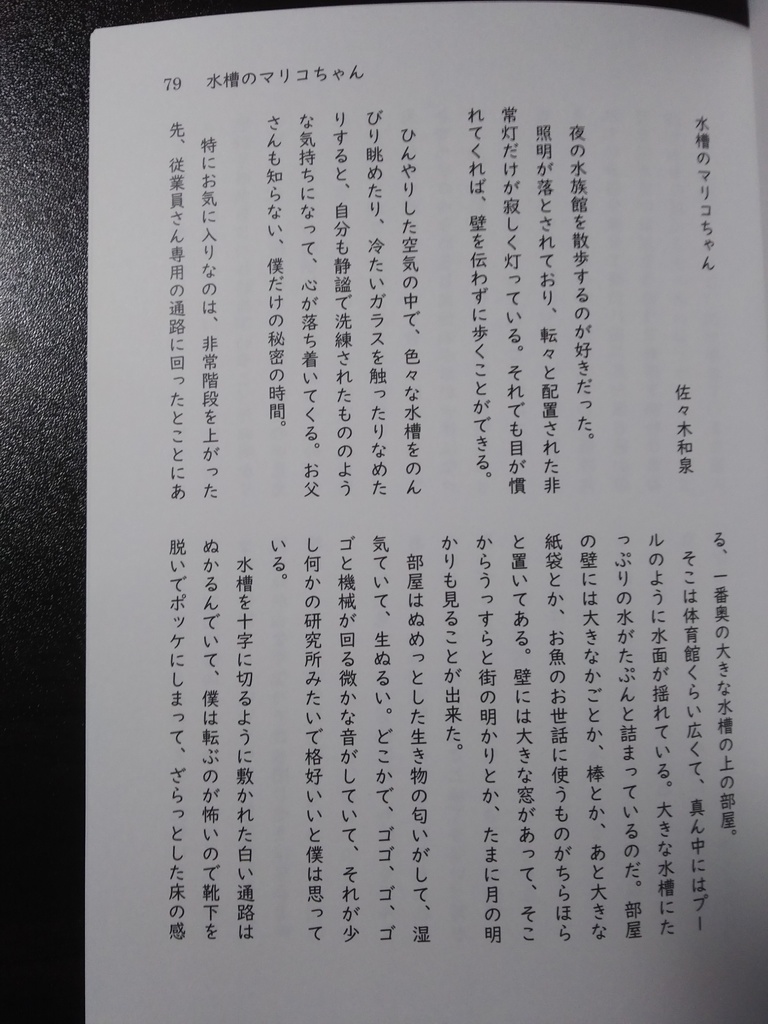 79　水槽のマリコちゃん
水槽のマリコちゃん
佐々木和泉
夜の水族館を散歩するのが好きだった。
照明が落とされており、転々と配置された非
常灯だけが寂しく灯っている。それでも目が慣
れてくれば、壁を伝わずに歩くことができる。
ひんやりした空気の中で、色々な水槽をのん
びり眺めたり、冷たいガラスを触ったりなめた
りすると、自分も静謐で洗練されたもののよう
な気持ちになって、心が落ち着いてくる。お父
さんも知らない、僕だけの秘密の時間。
特にお気に入りなのは、非常階段を上がった
先、従業員さん専用の通路に回ったとことにあ
る、一番奥の大きな水槽の上の部屋。
そこは体育館くらい広くて、真ん中にはプー
ルのように水面が揺れている。大きな水槽にた
っぷりの水がたぷんと詰まっているのだ。部屋
の壁には大きなかごとか、棒とか、あと大きな
紙袋とか、お魚のお世話に使うものがちらほら
と置いてある。壁には大きな窓があって、そこ
からうっすらと街の明かりとか、たまに月の明
かりも見ることが出来た。
部屋はぬめっとした生き物の匂いがして、湿
気ていて、生ぬるい。どこかで、ゴゴ、ゴ、ゴ
ゴと機械が回る微かな音がしていて、それが少
し何かの研究所みたいで格好いいと僕は思って
いる。
水槽を十字に切るように敷かれた白い通路は
ぬかるんでいて、僕は転ぶのが怖いので靴下を
脱いでポッケにしまって、ざらっとした床の感